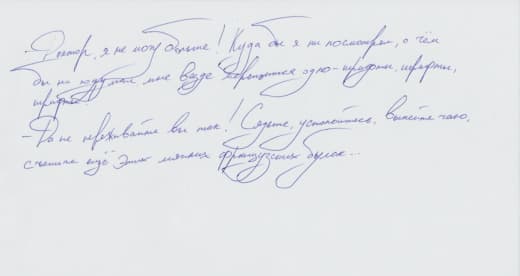 - Доктор, я не могу больше! Куда бы я ни посмотрел, о чём
бы ни подумал мне везде мерещится одно - шрифты, шрифты,
шрифты...
- Да не переживайте вы так! Сядьте, успокойтесь, выпейте чаю,
съешьте ещё этих мягких французских булок...